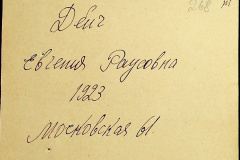 268
Дейч
Евгения Раусовна
1923
Московская 61.